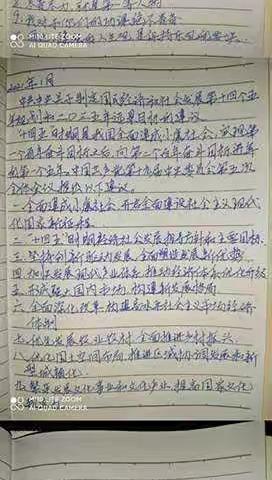 MI 10 LITE ZOOM
AI QUAD CAMERA
2021年1月
中共中央关于制定国民经济和社会发展第十四个五
年规划和二〇三五年远景目标的建议
"十四五"时期是我国全面建成小康社会、实现第
一个百年奋斗目标之后,向第二个百年奋斗目标进军
的第一个五年,中国共产党第十九届中央委员会第五次
全体会议 提出以下建议。
一、全面建成小康社会,开启全面建设社会主义现代
化国家新征程
二、"十四五"时期经济社会发展指导方针和主要目标
三、坚持创新驱动发展 全面塑造发展新优势
四、加快发展现代产业体系 推动经济体系优化升级
五、形成强大国内市场 构建新发展格局
六、全面深化改革 构建高水平社会主义市场经济
体制
七、优先发展农业农村 全面推进乡村振兴
八、优化国土空间布局 推进区域协调发展和新
型城镇化
九、繁荣发展文化事业和文化产业,提高国家文化
MI 10 LITE ZOOM
AI QUAD CAMERA